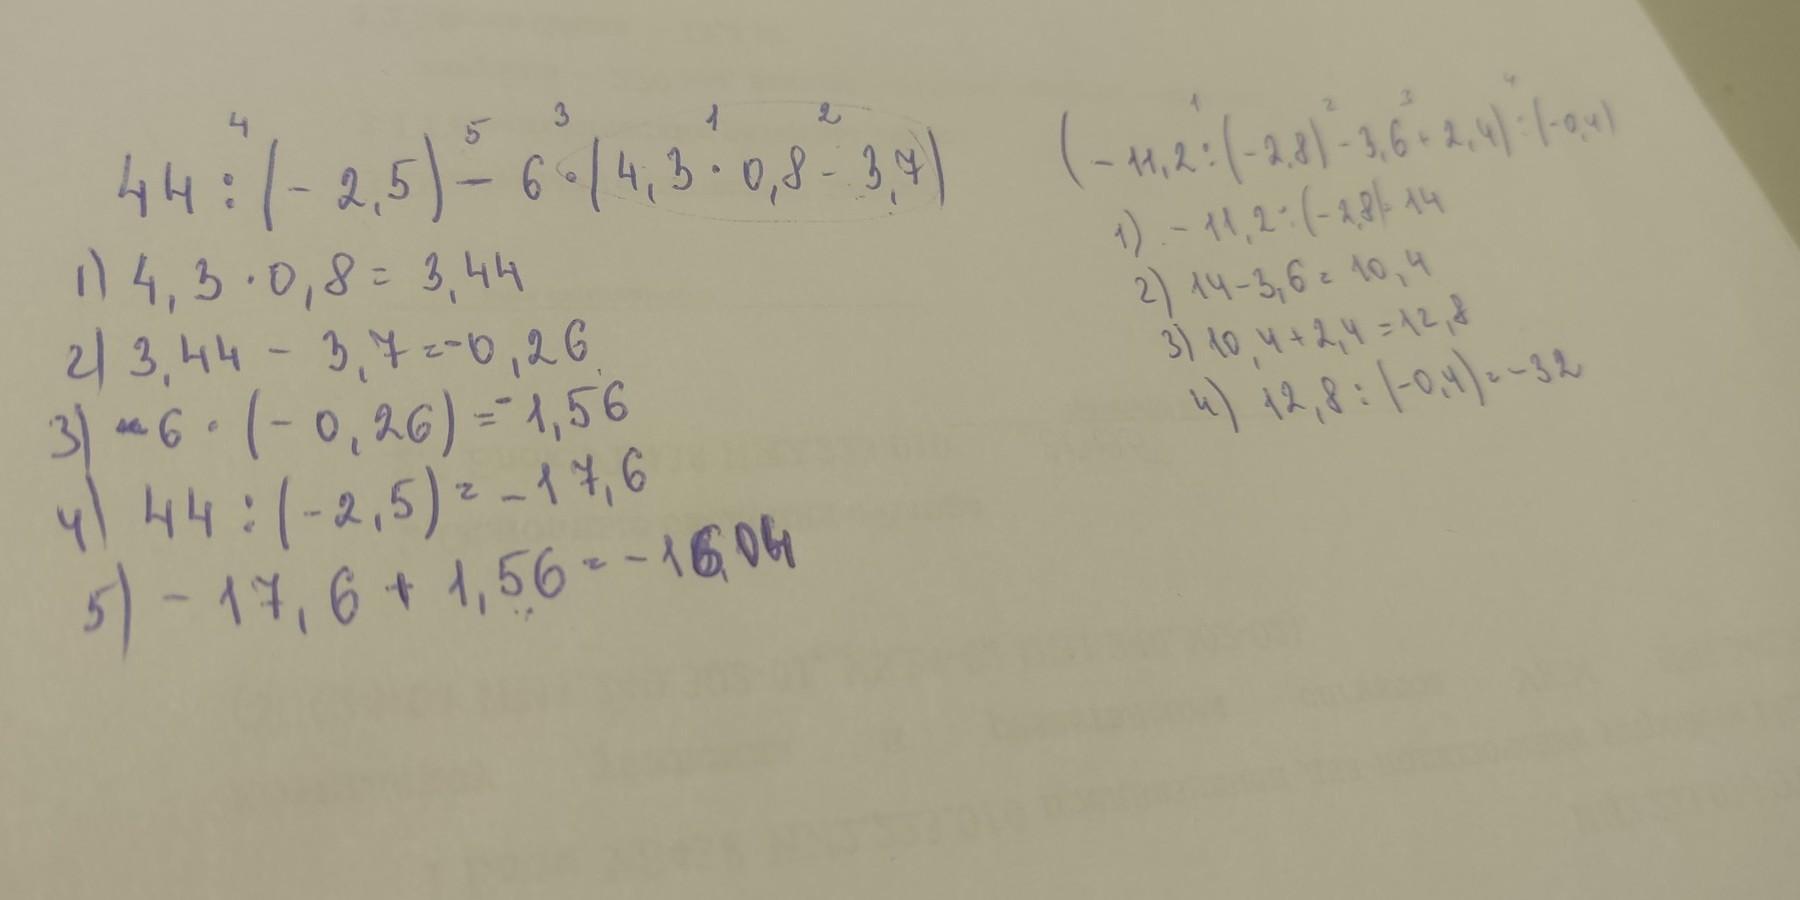 4 5 3 1 2
44 : (- 2,5) - 6 · (4,3 · 0,8 - 3,7)
1) 4,3 · 0,8 = 3,44
2) 3,44 - 3,7 = -0,26
3) -6 · (- 0,26) = -1,56
4) 44 : (-2,5) = -17,6
5) -17,6 + 1,56 = -16,04
1 2 3 4
(-11,2 : (-2,8) - 3,6 + 2,4) : (-0,4)
1) -11,2 : (-2,8) = 14
2) 14-3,6 = 10,4
3) 10,4+2,4 = 12,8
4) 12,8 : (-0,4) = -32